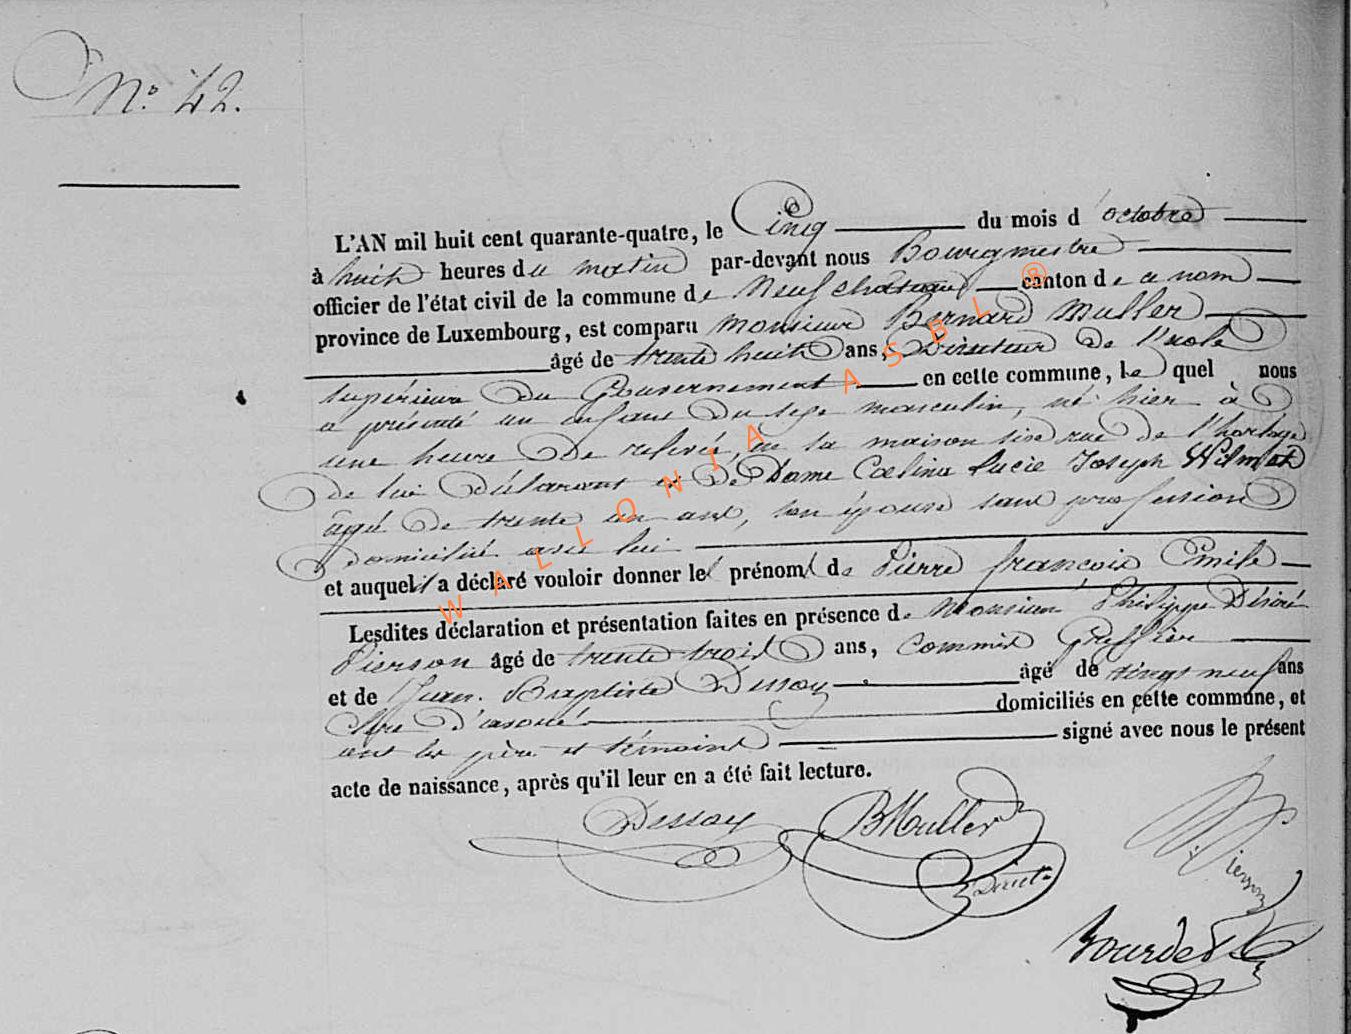 N.° 42.
L'AN mil huit cent quarante-quatre, le Cinq du mois d'octobre
à huit heures du matin par-devant nous Bourgmestre
officier de l'état civil de la commune de Neufchâteau canton de ce nom
province de Luxembourg, est comparu Monsieur Bernard Muller
âgé de trente huit ans, Directeur de l'école
supérieure du Gouvernement en cette commune, le quel nous
a présenté un enfant du sexe masculin, né hier à
une heure de relevée, en sa maison sise rue de l'horloge
de lui déclarant et de Dame Cœlina Lucie Joseph Wilmet
âgée de trente un ans, son épouse sans profession
domiciliée avec lui
et auquel il a déclaré vouloir donner les prénoms de Pierre françois Emile
Lesdites déclaration et présentation faites en présence de Monsieur Philippe Désiré
Pierson âgé de trente trois ans, commis Greffier
et de Jean Baptiste Dessoy âgé de vingt neuf ans
clerc d'avoué domiciliés en cette commune, et
ont les père et témoins signé avec nous le présent
acte de naissance, après qu'il leur en a été fait lecture.
Dessoy BMuller Pierson
Direct.
WALLONIA ASBL ®